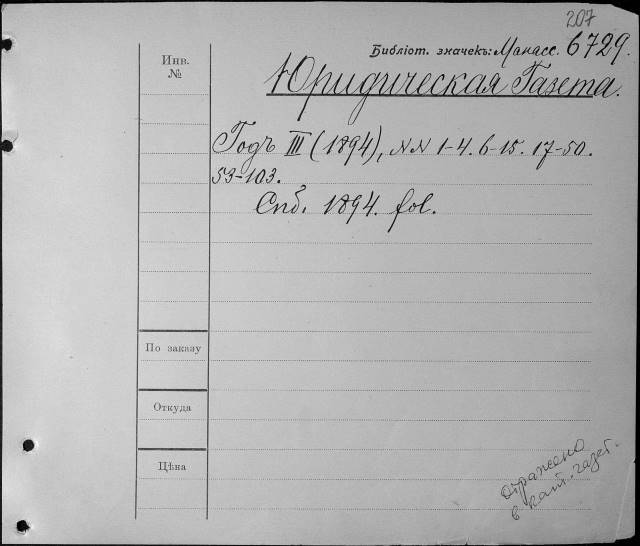 207
Библіот. значекъ: Манасс. 6729.
Инв.
№
Юридическая Газета.
Годъ III (1894), NN 1-4. 6-15. 17-50.
53-103.
Спб. 1894. fol.
По заказу
Откуда
Цѣна
отражено
в кат. газет.